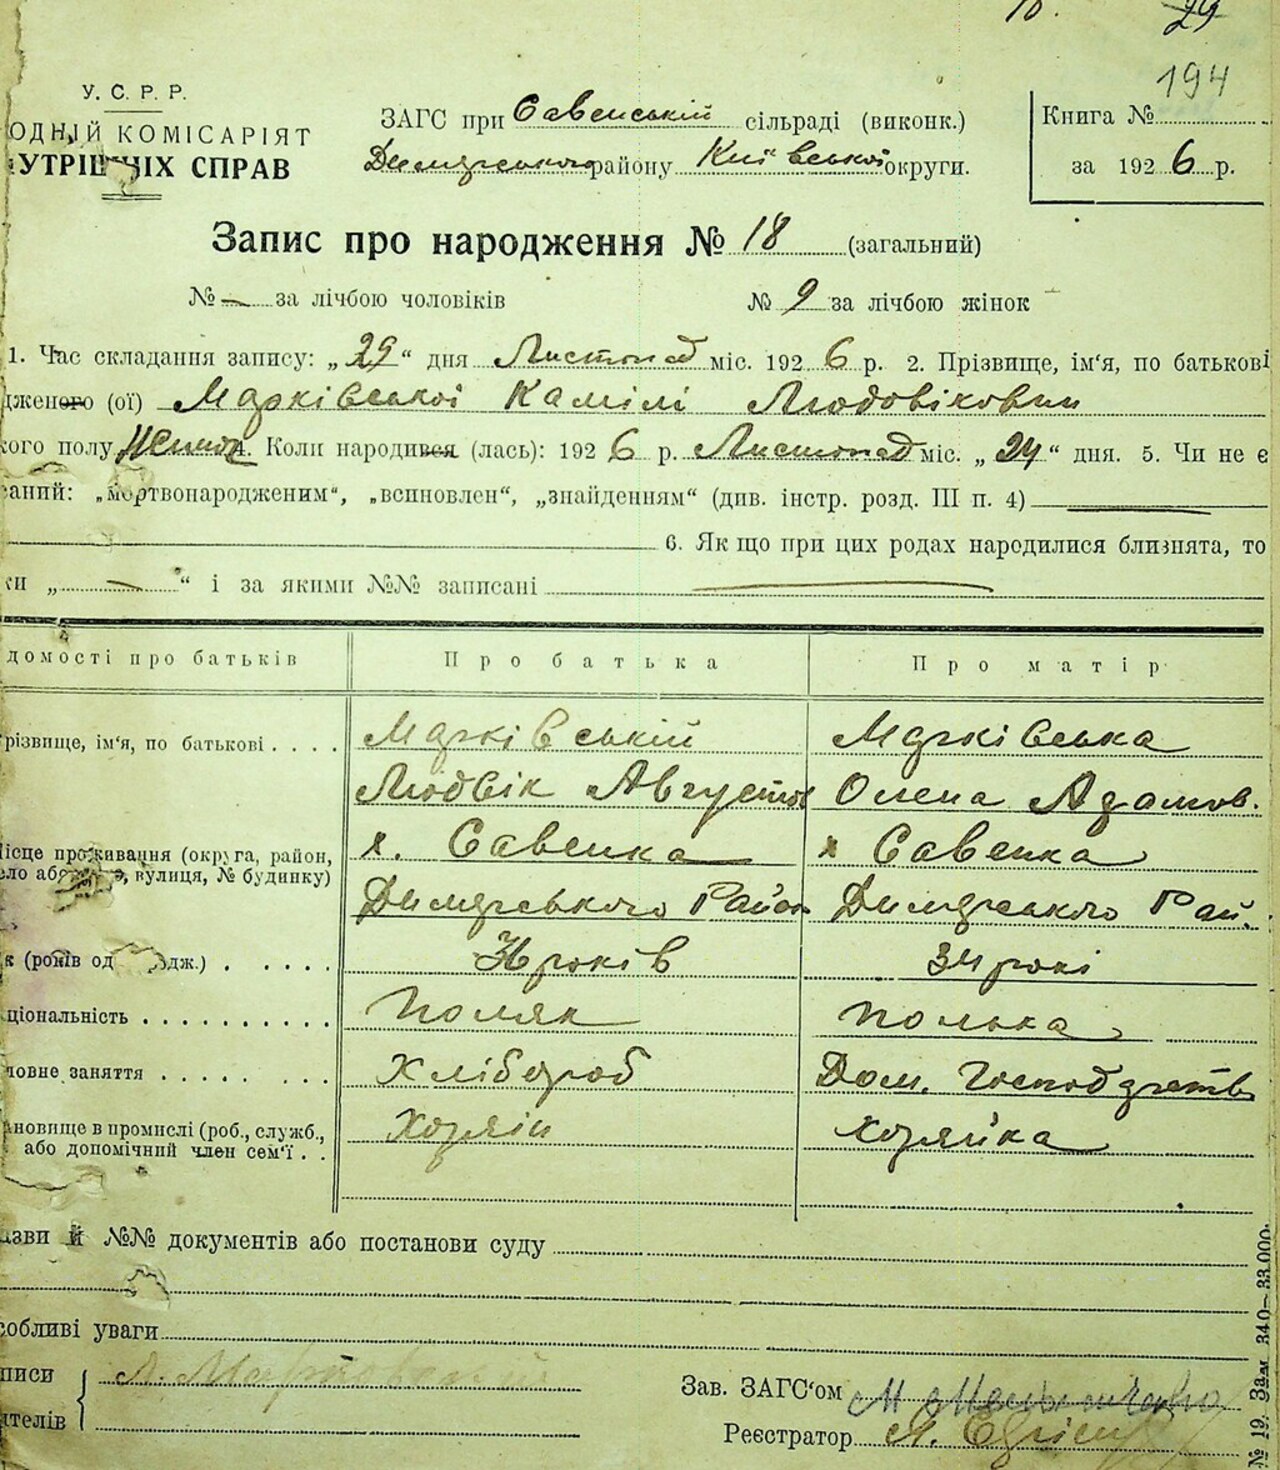 10. 29
194
У. С. Р. Р.
ОДНІЙ КОМІСАРІЯТ
УТРІШНІХ СПРАВ
ЗАГС при Савенській сільраді (виконк.)
Димерського району Київської округи.
Книга №
за 1926 р.
Запис про народження № 18 (загальний)
№ — за лічбою чоловіків № 9 за лічбою жінок
1. Час складання запису: „29“ дня Листопад міс. 1926 р. 2. Прізвище, ім‘я, по батькові
дженого (ої) Марківської Камілі Людовіковни
кого полу Жиноч 4. Коли народився (лась): 1926 р. Листопад міс. „24“ дня. 5. Чи не є
саний: „мертвонародженим“, „всиновлен“, „знайденням“ (див. інстр. розд. III п. 4) —
6. Якщо при цих родах народилися близнята, то
ки „—“ і за якими №№ записані —
домості про батьків Про батька Про матір
різвище, ім‘я, по батькові Марківській Марківська
Людвік Августов Олена Адамов.
ісце проживання (округа, район, х. Савенка х Савенка
ло або , вулиця, № будинку)
Димерського Район Димерського Рай.
к (років од дж.) 36 років 34 рокі
ціональність Поляк полька
ловне заняття Хлібороб Дом. Господарств
ановище в промислі (роб., служб., Хозяін хозяйка
або допомічний член сем‘ї
азви й №№ документів або постанови суду
собливі уваги
писи Л. Марковский
ителів
Зав. ЗАГС‘ом М
Реєстратор А.
№ 19. Зам 340—33.000.